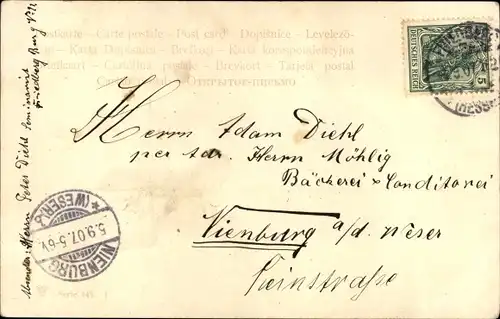 Postkarte – Carte postale – Post card – Dopisnice – Levelező-
Karta Dopisnica – Brefkort – Karta korespondencyjna
Cartolina postale – Brevkort – Tarjeta postal
ОТКРЫТОЕ ПИСЬМО
DEUTSCHES REICH
5
FRIEDBERG
(HESSEN)
Herrn Adam Diehl
per adr. Herrn Möhlig
Bäckerei & Conditorei
Nienburg a/d. Weser
Steinstraße
NIENBURG
*(WESER)*
5.9.07.5-6V.
Herrn Peter Diehl Seminarist
Friedberg Burg